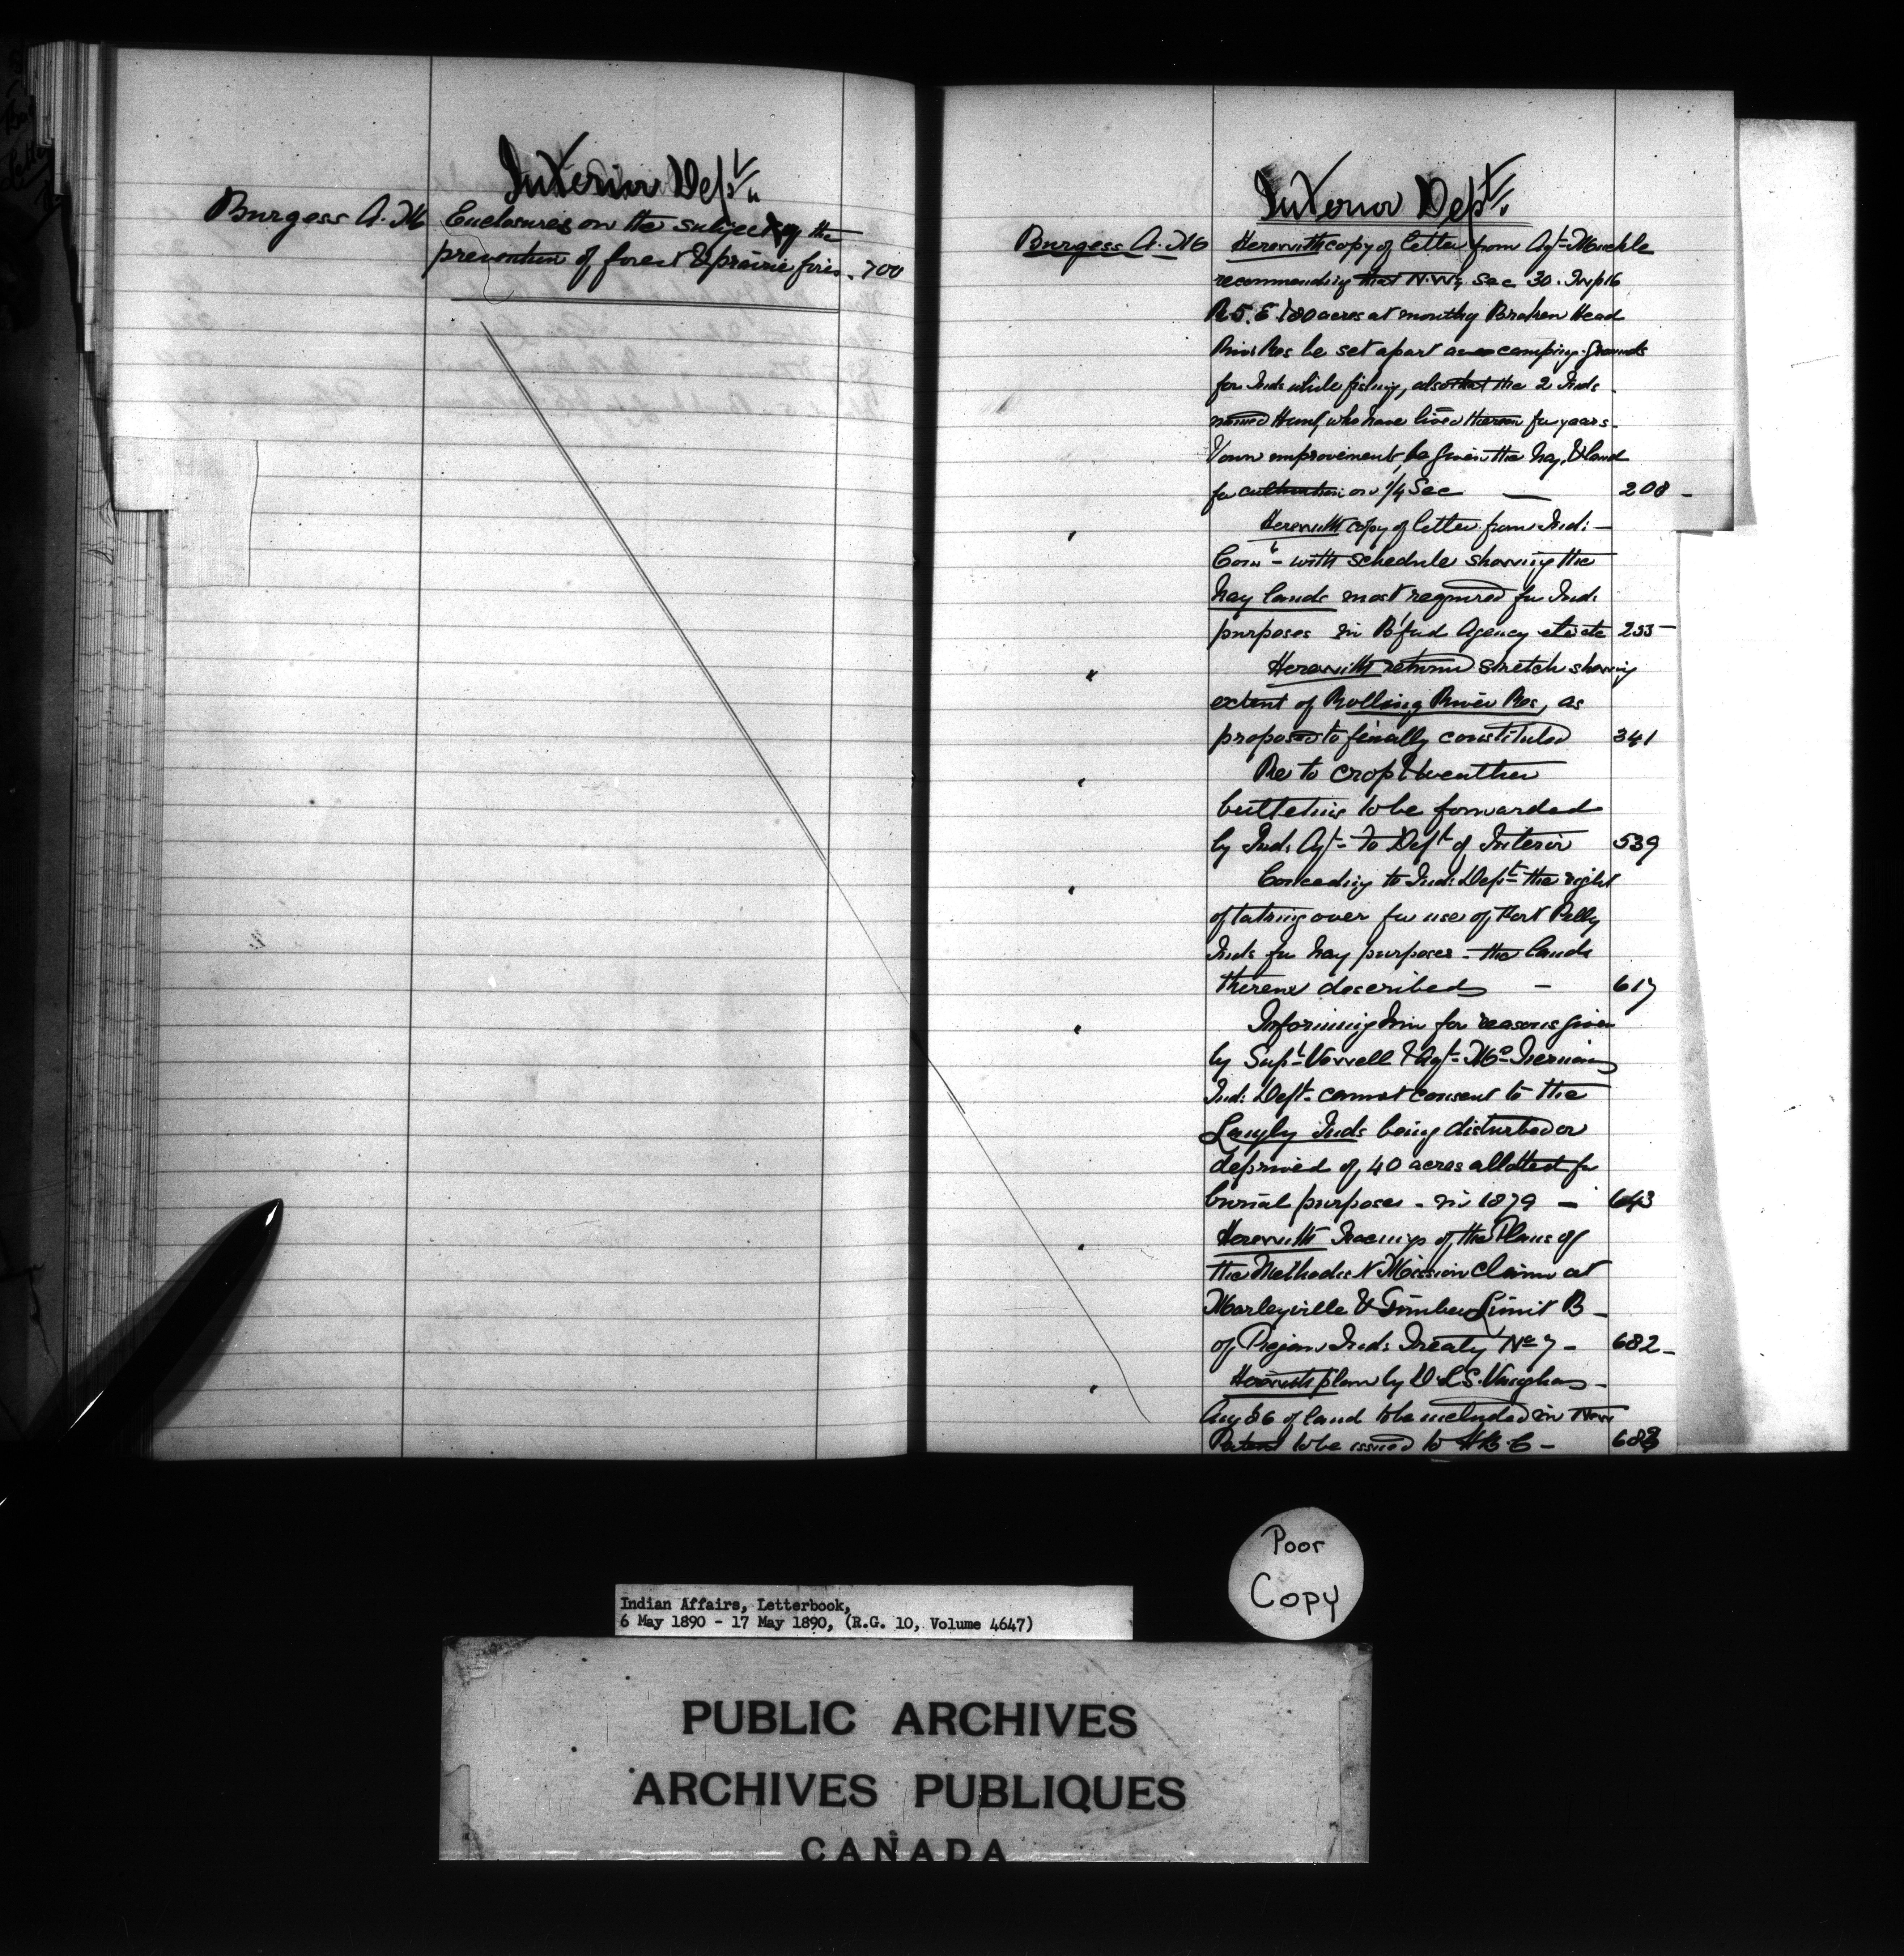 Interior Dept.
Burgess A. M Enclosures on the subject of the
prevention of forest & prairie fires. 700
Interior Dept.
Burgess A. M Herewith copy of letter from Agt. Muckle
recommending that N.W¼ Sec 30. Twp 16
R 5. E. 180 acres at mouth of Broken Head
River Res be set apart as camping grounds
for Inds while fishing, also that the 2 Inds
named who have lived thereon for years
& own improvements, be given the hay, & land
for cultivation on ¼ Sec — 208 -
" Herewith copy of letter from Ind:
Comr - with schedule showing the
hay lands most required for Ind:
purposes in B'ford Agency etc etc 233 -
" Herewith return sketch showing
extent of Rolling River Res, as
proposed to finally constituted 341
" Re to crop & weather
bulletins to be forwarded
by Ind. Agt. to Dept of Interior 539
" Conceding to Ind: Dept. the right
of taking over for use of Fort Pelly
Inds for hay purposes - the lands
therein described — 617
" Informing him for reasons given
by Supt. Vowell & Agt. McTiernan
Ind: Dept. cannot consent to the
Langly Inds being disturbed or
deprived of 40 acres allotted for
burial purposes - in 1879 — 643
" Herewith tracings of the Plans of
the Methodist Mission Claim at
Morleyville & Timber Limit B -
of Piegan Inds Treaty No 7 - 682 -
" Herewith plan by D.L.S. Vaughan -
Aug 86 of land to be included in New
Patent to be issued to H.B.C - 683
Poor
Copy
Indian Affairs, Letterbook,
6 May 1890 - 17 May 1890, (R.G. 10, Volume 4647)
PUBLIC ARCHIVES
ARCHIVES PUBLIQUES
CANADA